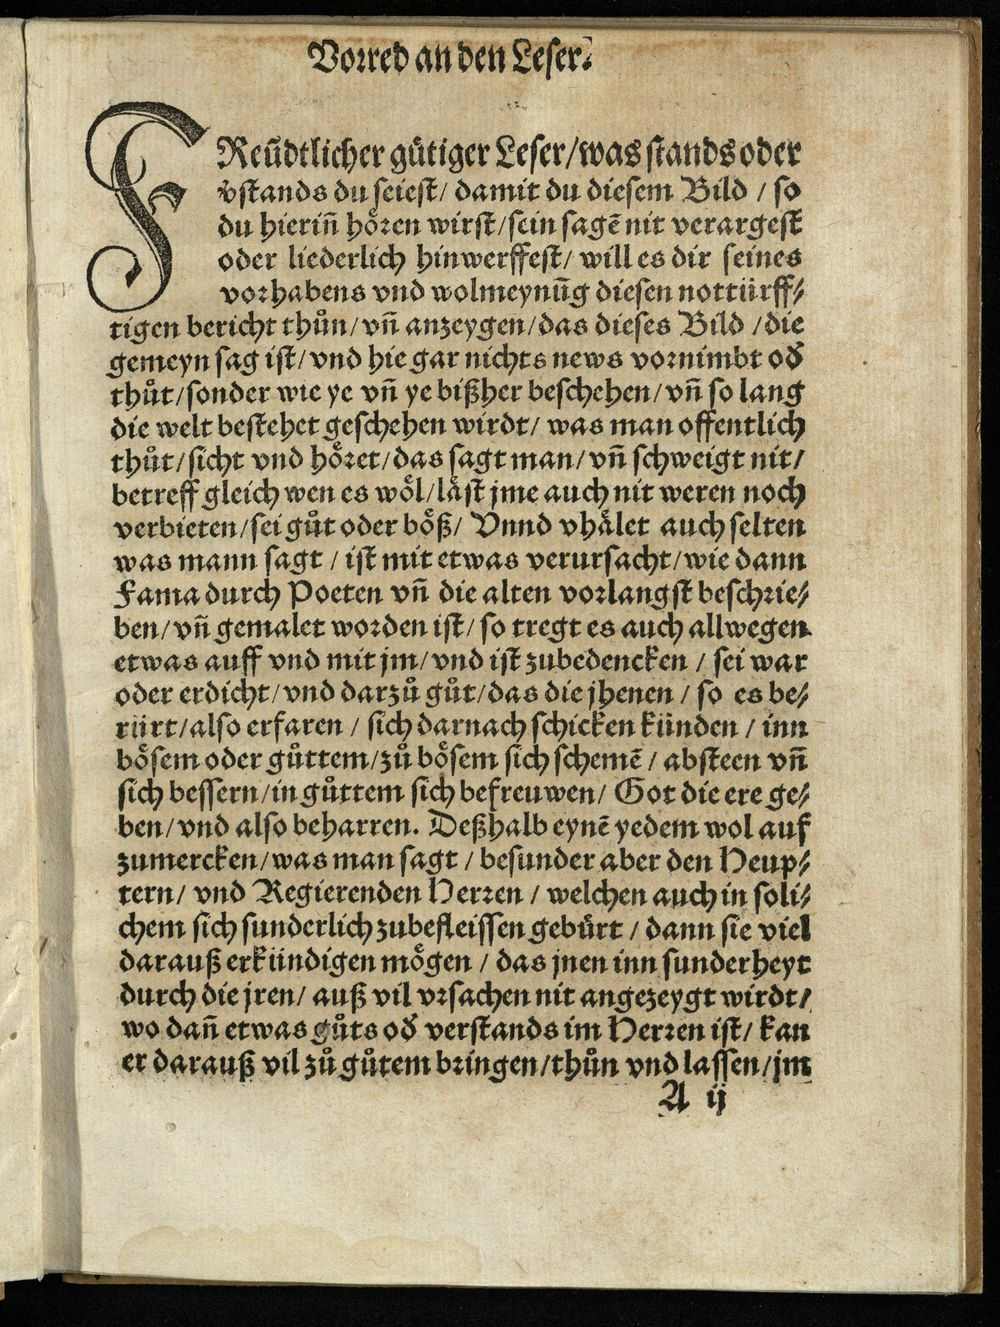 Vorred an den Leser.
FReüdtlicher gůtiger Leser/was stands oder
vstands du seiest/ damit du diesem Bild / so
du hieriñ hoͤren wirst/sein sagē nit verargest
oder liederlich hinwerffest/ will es dir seines
vorhabens vnd wolmeynūg diesen nottürff⸗
tigen bericht thůn/vñ anzeygen/das dieses Bild /die
gemeyn sag ist/vnd hie gar nichts news vornimbt oď
thůt/sonder wie ye vñ ye bißher beschehen/vñ so lang
die welt bestehet geschehen wirdt/ was man offentlich
thůt/sicht vnd hoͤret/das sagt man/vñ schweigt nit/
betreff gleich wen es woͤl/laͤst jme auch nit weren noch
verbieten/sei gůt oder boͤß/ Vnnd vhaͤlet auch selten
was mann sagt / ist mit etwas verursacht/wie dann
Fama durch Poeten vñ die alten vorlangst beschrie⸗
ben/vñ gemalet worden ist/ so tregt es auch allwegen
etwas auff vnd mit jm/vnd ist zubedencken / sei war
oder erdicht/vnd darzů gůt/das die jhenen / so es be⸗
rürt/also erfaren / sich darnach schicken künden / inn
boͤsem oder gůttem/zů boͤsem sich schemē / absteen vñ
sich bessern/in gůttem sich befreuwen/ Got die ere ge⸗
ben/vnd also beharren. Deßhalb eynē yedem wol auf
zumercken/was man sagt / besunder aber den Heup⸗
tern/ vnd Regierenden Herren / welchen auch in soli⸗
chem sich sunderlich zubefleissen gebürt / dann sie viel
darauß erkündigen moͤgen / das jnen inn sunderheyt
durch die jren/ auß vil vrsachen nit angezeygt wirdt/
wo dañ etwas gůts oď verstands im Herren ist/ kan
er darauß vil zů gůtem bringen/thůn vnd lassen/jm
A ij